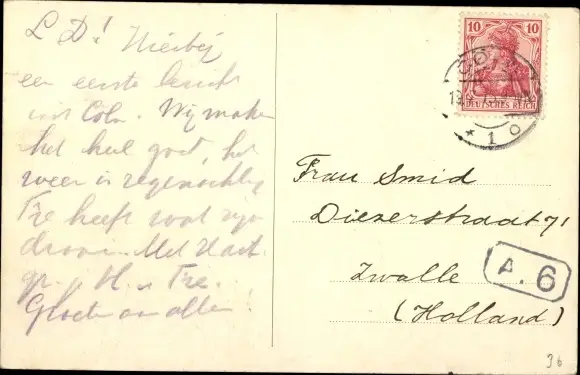 L D! Hierbij
een eerste bericht
uit Cöln. Wij maken
het heel goed, het
weer is regenachtig
Tre heeft wat
Met Hart.
gr. H. Tre.
Groeten aan allen.
10 10
DEUTSCHES REICH
CÖLN
* 1 o
Frau Smid
Diezerstraat 71
Zwolle
(Holland)
A. 6
36